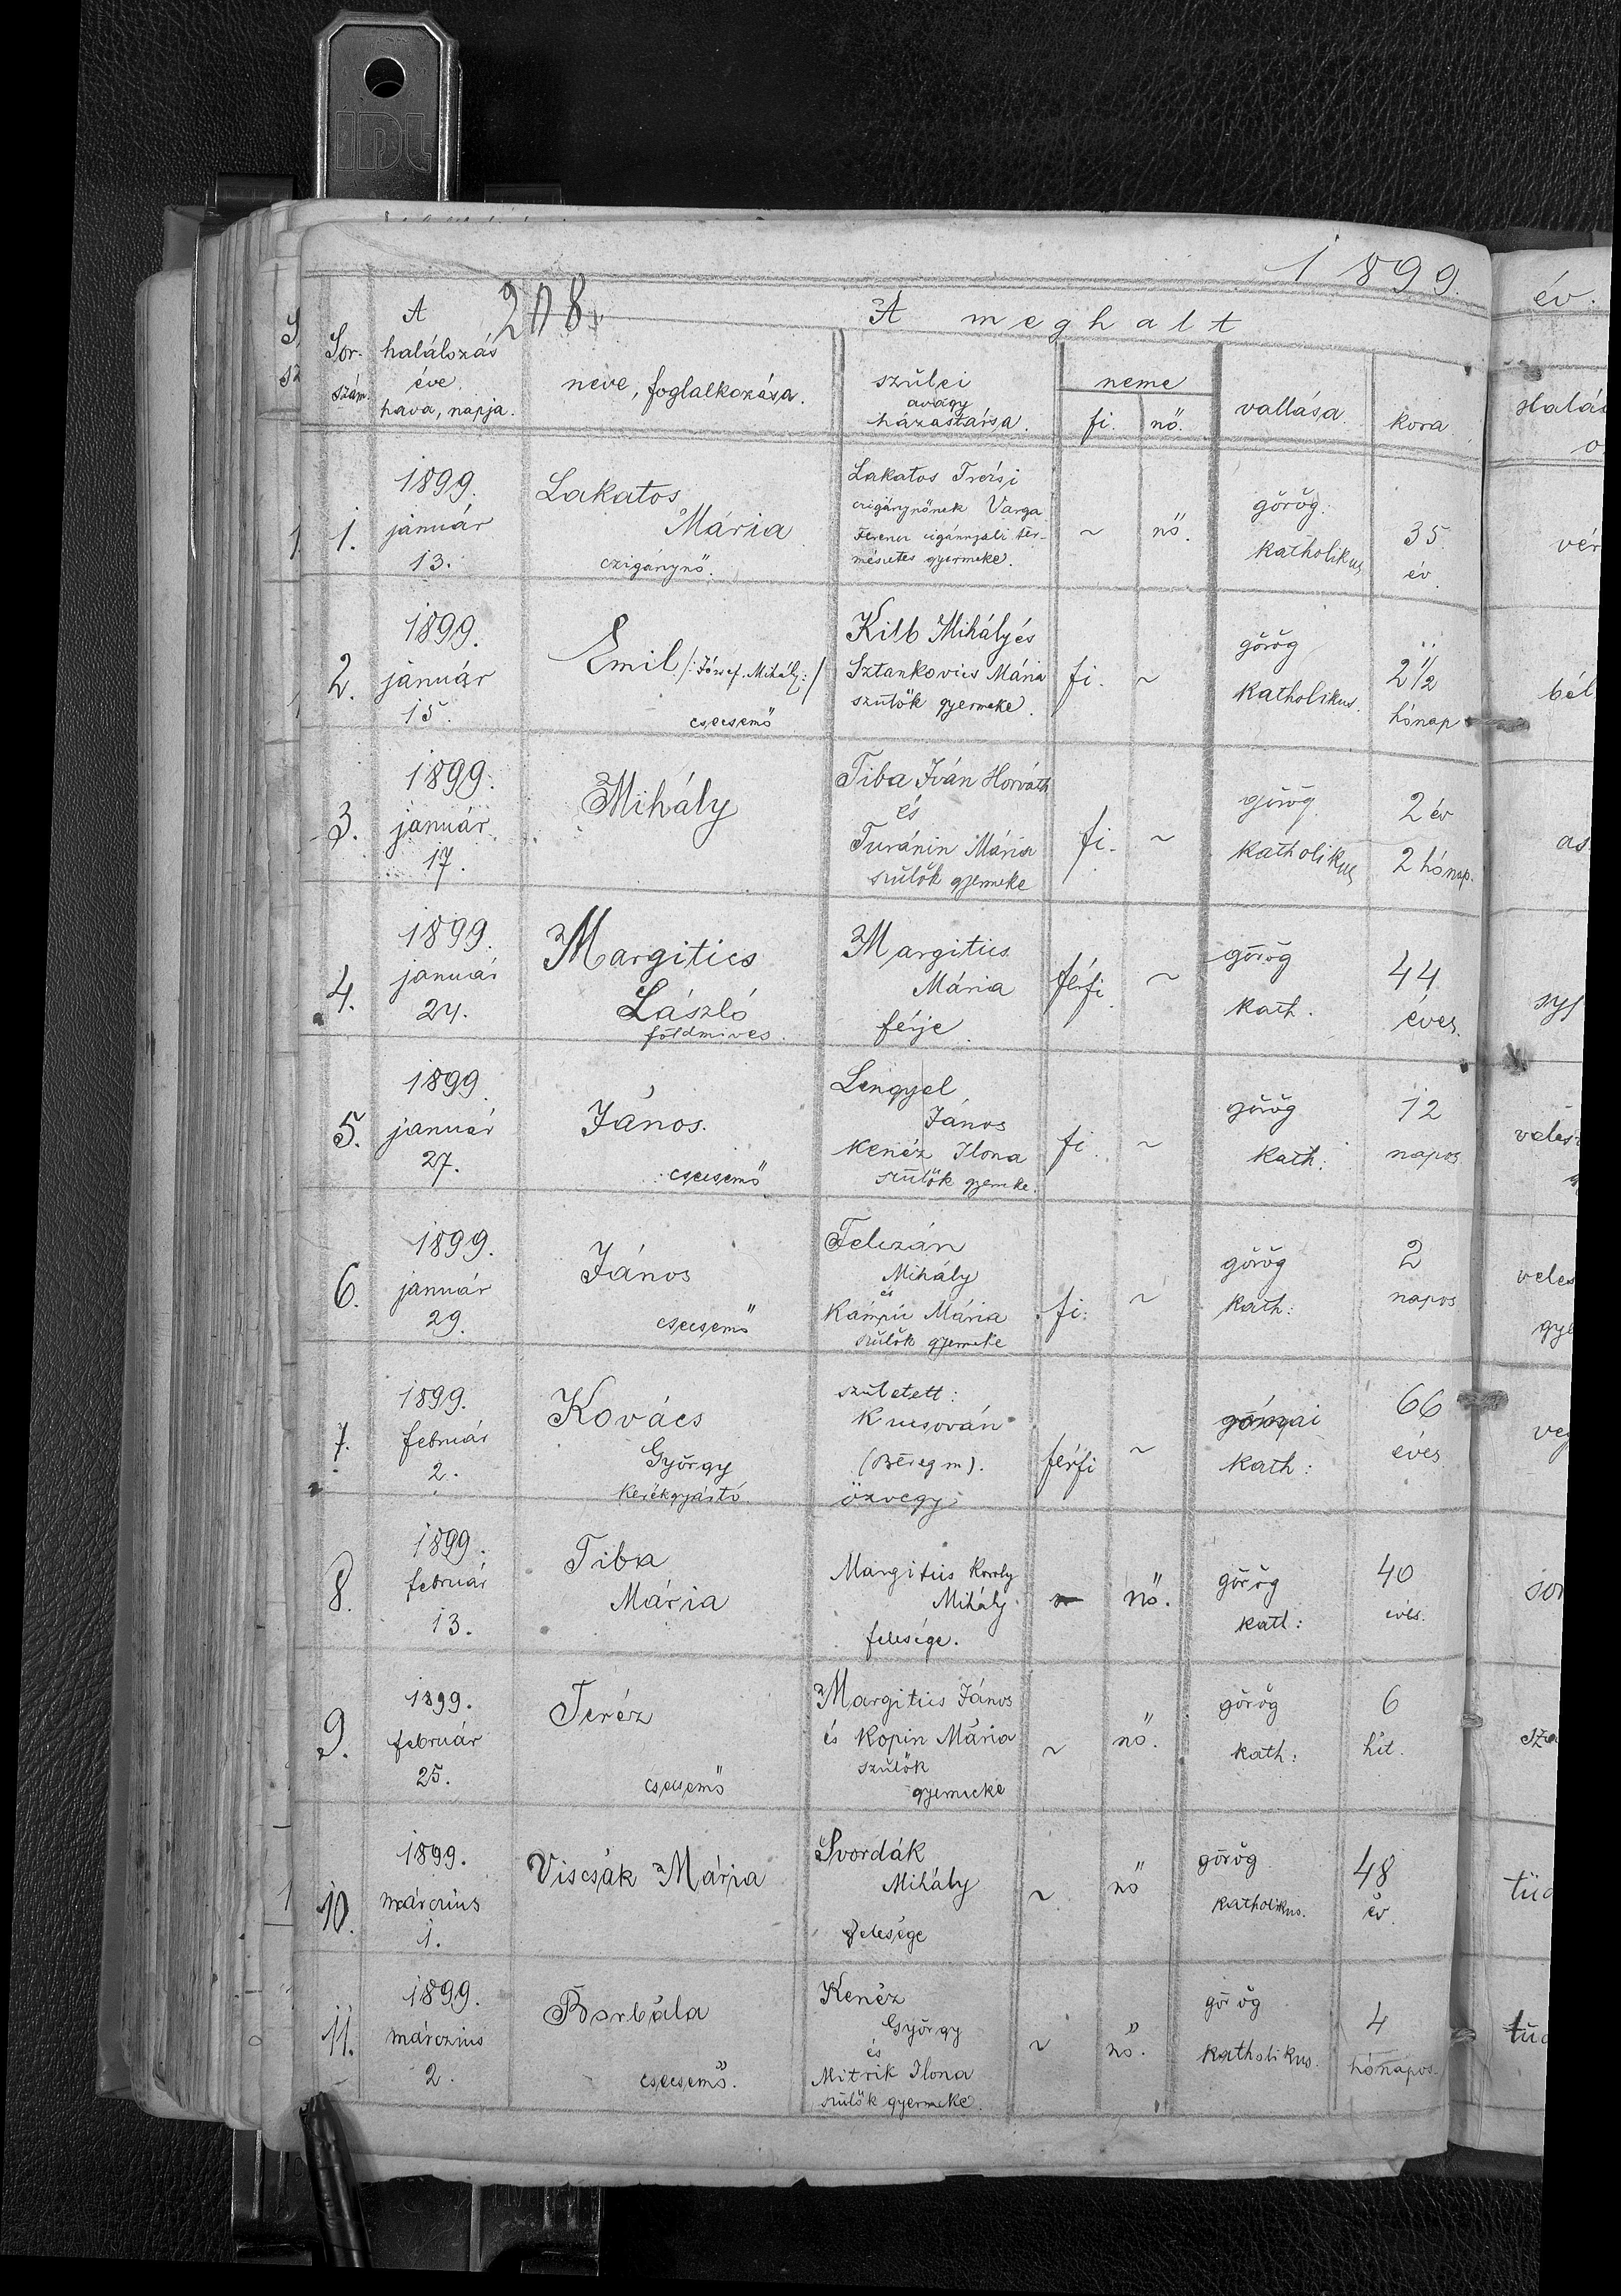 IDL
1899.
208.
A meghalt
Sor-
szám.
A
halálozás
éve
hava, napja.
neve, foglalkozása.
szülei
avagy
házastársa.
neme
fi. nő.
vallása.
kora
év.
1.
1899.
január
13.
Lakatos
Mária
czigánynő.
Lakatos Trézsi
czigánynőnek Varga
Ferencz cigánnyali ter-
mészetes gyermeke.
~ nő.
görög
katholikus
35
év.
vér
2.
1899.
január
15.
Emil /:József. Mihály:/
csecsemő
Kilb Mihály és
Sztankovics Mária
szülők gyermeke.
fi. ~
görög
katholikus.
2 1/2
hónap
bél
3.
1899.
január
17.
Mihály
Tiba Iván Horváth
és
Turánin Mária
szülők gyermeke
fi. ~
görög
katholikus
2 év
2 hónap.
as
4.
1899.
január
24.
Margitics
László
földmives.
Margitics
Mária
férje.
férfi ~
görög
kath.
44
éves.
5.
1899.
január
27.
János.
csecsemő
Lengyel
János
Kenéz Ilona
szülők gyermeke.
fi. ~
görög
kath:
12
napos
veles
6.
1899.
január
29.
János
csecsemő
Telezán
Mihály
és
Kámpu Mária
szülők gyermeke
fi: ~
görög
kath:
2
napos
veles
gye
7.
1899.
február
2.
Kovács
György
Kerékgyártó.
született:
Kucsován
(Bereg m).
özvegy
férfi ~
kath:
66
éves
8.
1899.
február
13.
Tiba
Mária
Margitics Karoly
Mihály
felesége.
nő.
görög
kath:
40
éves.
9.
1899.
február
25.
Teréz
csecsemő
Margitics János
és Kopin Mária
szülők
gyermeke
~ nő.
görög
kath:
6
hét.
10.
1899.
márczius
1.
Viscsák Mária
Svordák
Mihály
felesége
~ nő
görög
katholikus.
48
év.
tüd
11.
1899.
márczius
2.
Borbála
csecsemő.
Kenéz
György
és
Mitrik Ilona
szülők gyermeke.
~ nő.
görög
katholikus.
4
hónapos.
tüd